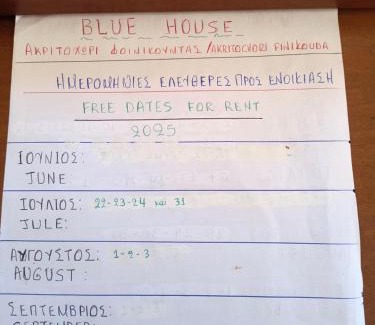 BLUE HOUSE
ΑΚΡΙΤΟΧΩΡΙ ΦΟΙΝΙΚΟΥΝΤΑΣ/AKRITOCHORI FINIKOUDA
ΗΜΕΡΟΜΗΝΙΕΣ ΕΛΕΥΘΕΡΕΣ ΠΡΟΣ ΕΝΟΙΚΙΑΣΗ
FREE DATES FOR RENT
2025
ΙΟΥΝΙΟΣ:
JUNE
ΙΟΥΛΙΟΣ: 22-23-24 και 31
JULE:
ΑΥΓΟΥΣΤΟΣ: 1-2-3
AUGUST:
ΣΕΠΤΕΜΒΡΙΟΣ:
SEPTEMBER: